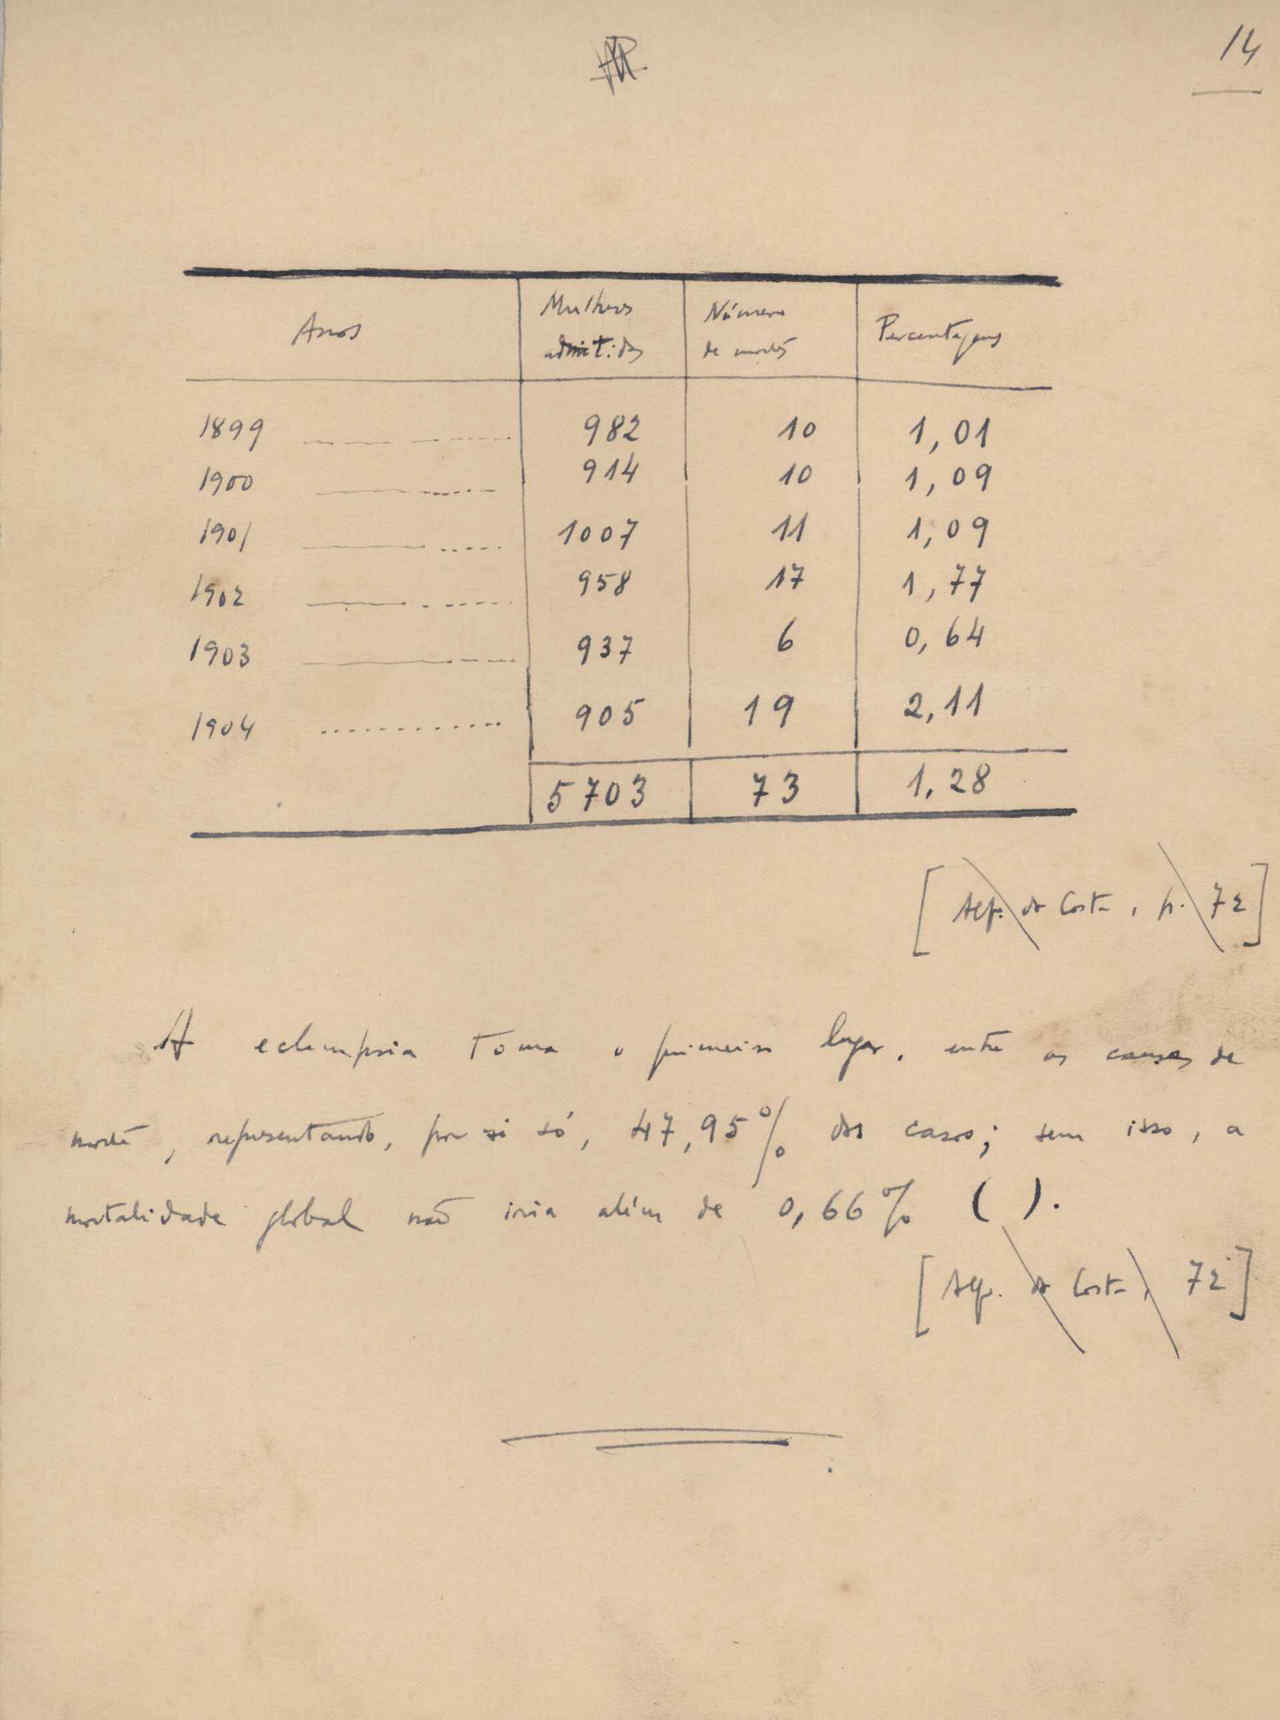 14
Anos Mulheres admitidas Número de mortes Percentagens
1899 982 10 1,01
1900 914 10 1,09
1901 1007 11 1,09
1902 958 17 1,77
1903 937 6 0,64
1904 905 19 2,11
5703 73 1,28
[Alf. da Costa, p. 72]
A eclampsia toma o primeiro lugar, entre as causas de
morte, representando, por si só, 47,95% dos casos; sem isso, a
mortalidade global não iria além de 0,66% ( ).
[Alf. da Costa, 72]